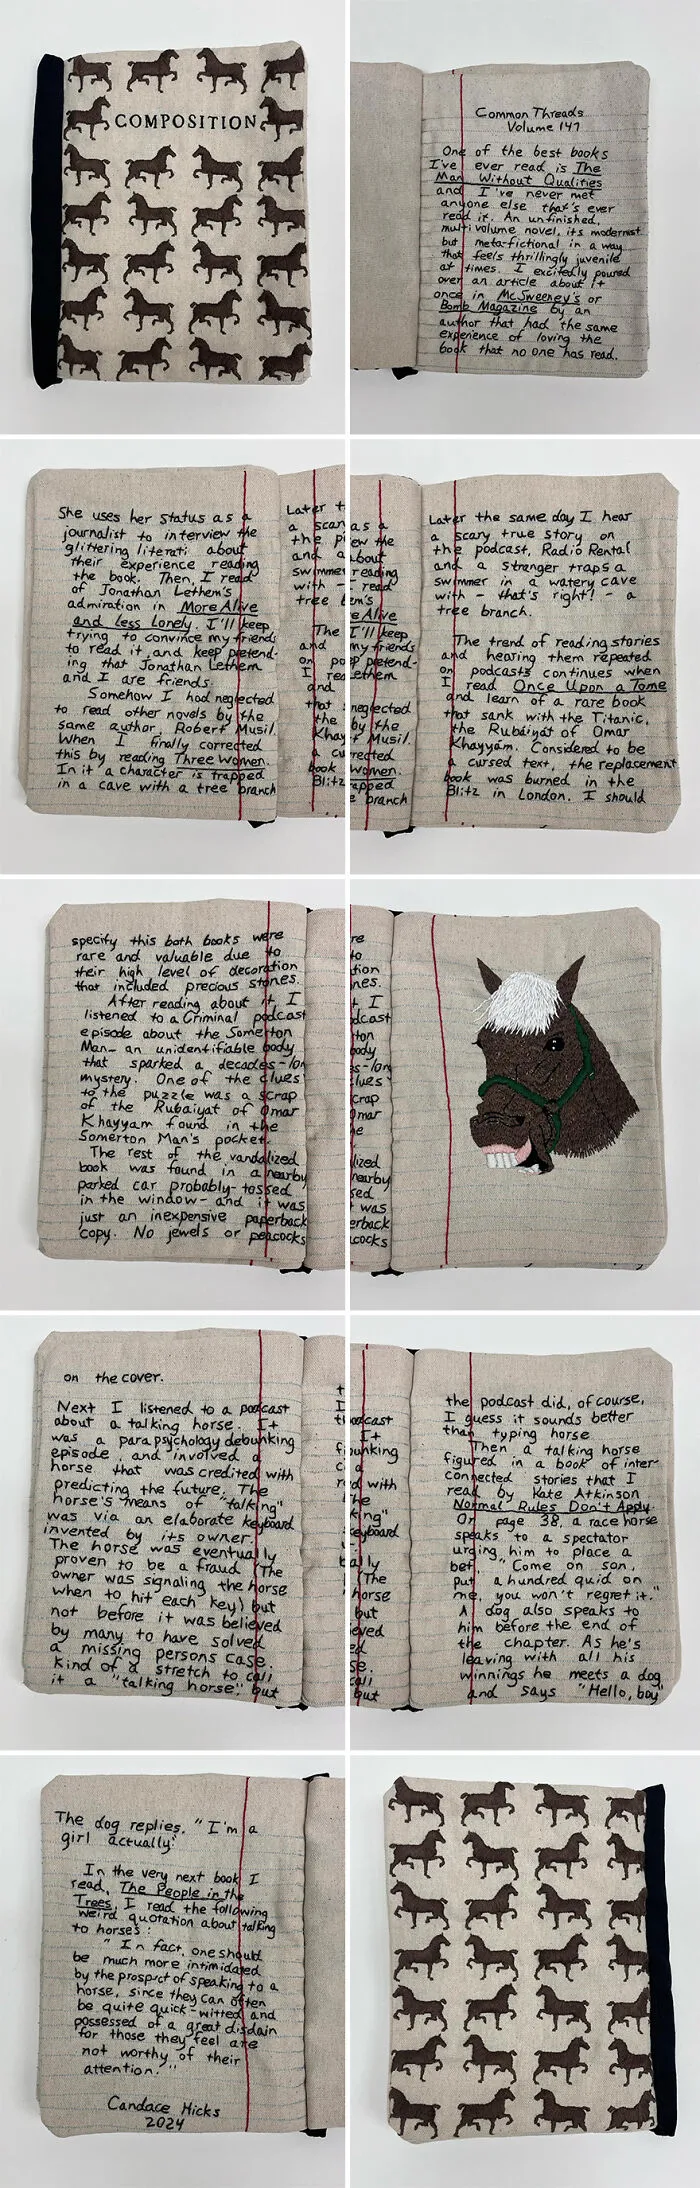 COMPOSITION
Common Threads
Volume 147
One of the best books
I've ever read is The
Man Without Qualities
and I've never met
anyone else that's ever
read it. An unfinished,
multivolume novel, its modernist
but metafictional in a way
that feels thrillingly juvenile
at times. I excitedly poured
over an article about it
once in McSweeney's or
Bomb Magazine by an
author that had the same
experience of loving the
book that no one has read.
She uses her status as a
journalist to interview the
glittering literati about
their experience reading
the book. Then, I read
of Jonathan Lethem's
admiration in More Alive
and Less Lonely. I'll keep
trying to convince my friends
to read it and keep pretend-
ing that Jonathan Lethem
and I are friends.
Somehow I had neglected
to read other novels by the
same author Robert Musil.
When I finally corrected
this by reading Three Women.
In it a character is trapped
in a cave with a tree branch
Later the same day I hear
a scary true story on
the podcast, Radio Rental
and a stranger traps a
swimmer in a watery cave
with - that's right! - a
tree branch.
The trend of reading stories
and hearing them repeated
on podcasts continues when
I read Once Upon a Tome
and learn of a rare book
that sank with the Titanic,
the Rubáiyát of Omar
Khayyám. Considered to be
a cursed text, the replacement
book was burned in the
Blitz in London. I should
specify this both books were
rare and valuable due to
their high level of decoration
that included precious stones.
After reading about it I
listened to a Criminal podcast
episode about the Somerton
Man- an unidentifiable body
that sparked a decades-lon
mystery. One of the clues
to the puzzle was a scrap
of the Rubaiyat of Omar
Khayyam found in the
Somerton Man's pocket.
The rest of the vandalized
book was found in a nearby
parked car probably tossed
in the window- and it was
just an inexpensive paperback
copy. No jewels or peacocks
on the cover.
Next I listened to a podcast
about a talking horse. It
was a parapsychology debunking
episode and involved a
horse that was credited with
predicting the future. The
horse's means of "talking"
was via an elaborate keyboard
invented by its owner.
The horse was eventually
proven to be a fraud (The
owner was signaling the horse
when to hit each key) but
not before it was believed
by many to have solved
a missing persons case.
Kind of a stretch to call
it a "talking horse", but
the podcast did, of course,
I guess it sounds better
than typing horse.
Then a talking horse
figured in a book of inter-
connected stories that I
read by Kate Atkinson
Normal Rules Don't Apply.
On page 38, a race horse
speaks to a spectator
urging him to place a
bet, "Come on son,
put a hundred quid on
me, you won't regret it."
A dog also speaks to
him before the end of
the chapter. As he's
leaving with all his
winnings he meets a dog
and says "Hello, boy"
The dog replies, "I'm a
girl actually."
In the very next book I
read, The People in the
Trees, I read the following
weird quotation about talking
to horses:
"In fact, one should
be much more intimidated
by the prospect of speaking to a
horse, since they can often
be quite quick-witted and
possessed of a great disdain
for those they feel are
not worthy of their
attention."
Candace Hicks
2024